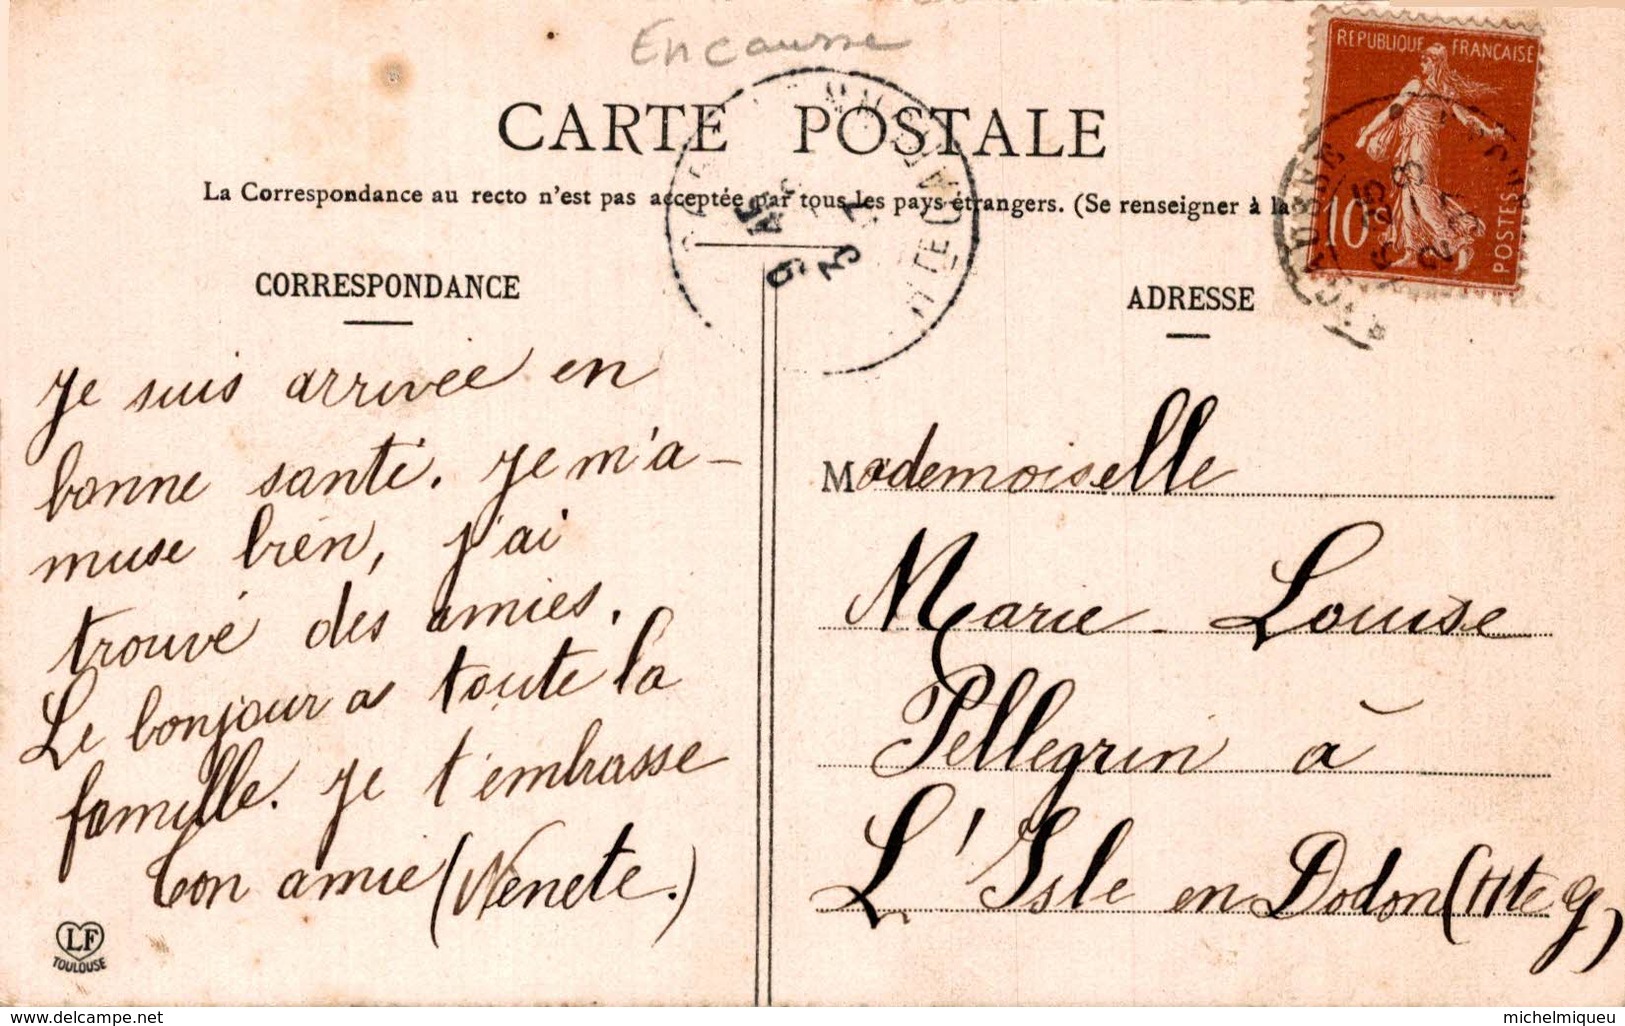 Encausse
CARTE POSTALE
La Correspondance au recto n'est pas acceptée par tous les pays étrangers. (Se renseigner à la
REPUBLIQUE FRANÇAISE
10
POSTES
CORRESPONDANCE
Je suis arrivée en
bonne santé. Je m'a-
muse bien, j'ai
trouvé des amies.
Le bonjour a toute la
famille. Je t'embrasse
Ton amie (Nenete.)
LF
TOULOUSE
ADRESSE
Mademoiselle
Marie-Louise
Pellegrin à
L'Isle en Dodon (Hte g)
www.delcampe.net
michelmiqueu